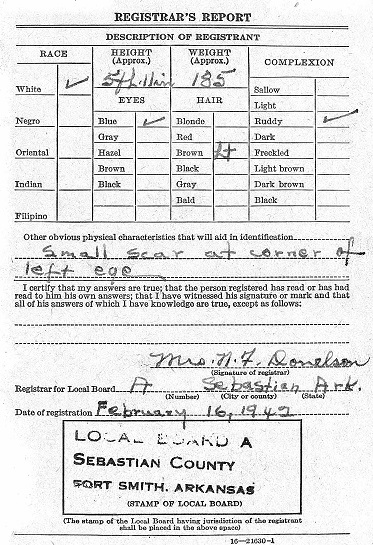 REGISTRAR'S REPORT
DESCRIPTION OF REGISTRANT
RACE
HEIGHT
(Approx.)
WEIGHT
(Approx.)
COMPLEXION
White ✓
5 ft. 11 in
185
Sallow
EYES
HAIR
Light
Negro
Blue ✓
Blonde
Ruddy ✓
Gray
Red
Dark
Oriental
Hazel
Brown lt
Freckled
Brown
Black
Light brown
Indian
Black
Gray
Dark brown
Bald
Black
Filipino
Other obvious physical characteristics that will aid in identification
Small scar at corner of
left eye
I certify that my answers are true; that the person registered has read or has had
read to him his own answers; that I have witnessed his signature or mark and that
all of his answers of which I have knowledge are true, except as follows:
Mrs. N. F. Donelson
(Signature of registrar)
Registrar for Local Board A Sebastian Ark.
(Number) (City or county) (State)
Date of registration February 16, 1942
LOCAL BOARD A
SEBASTIAN COUNTY
FORT SMITH, ARKANSAS
(STAMP OF LOCAL BOARD)
(The stamp of the Local Board having jurisdiction of the registrant
shall be placed in the above space)
16—21630-1